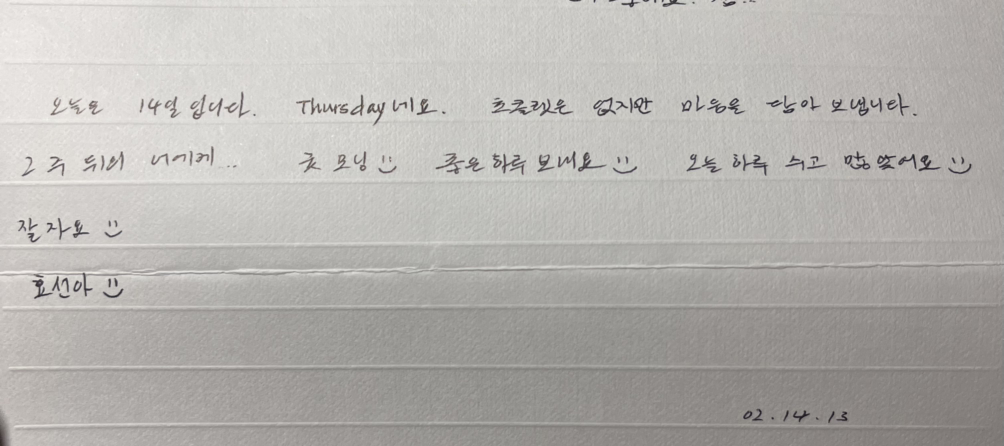 오늘은 14일 입니다. Thursday네요. 초콜렛은 없지만 마음을 담아 보냅니다.
2주 뒤의 너에게.. 굿 모닝 :) 좋은 하루 보내요 :) 오늘 하루 수고 많았어요 :)
잘 자요 :)
효선아 :)
02.14.13